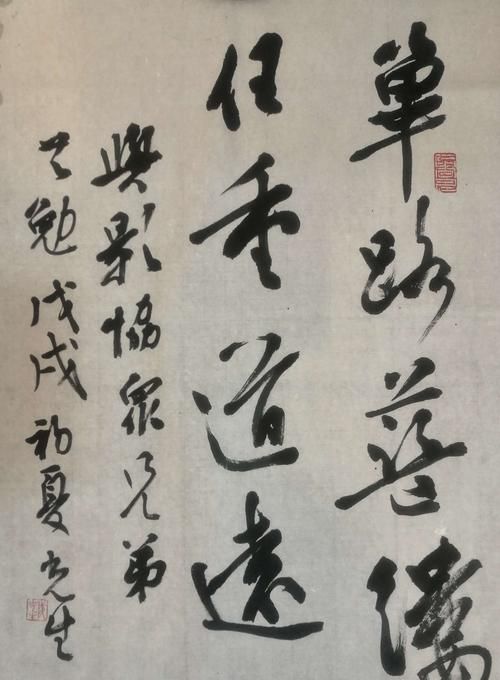 篳路藍縷
任重道遠
與影協眾兄弟
共勉戊戌初夏光生